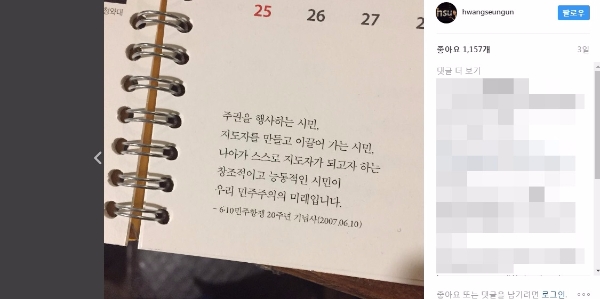 청와대
25 26 27 2
주권을 행사하는 시민,
지도자를 만들고 이끌어 가는 시민,
나아가 스스로 지도자가 되고자 하는
창조적이고 능동적인 시민이
우리 민주주의의 미래입니다.
- 6·10민주항쟁 20주년 기념사(2007.06.10)
hsu
hwangseungun
팔로우
좋아요 1,157개 3일
댓글 더 보기
좋아요 또는 댓글을 남기려면 로그인.